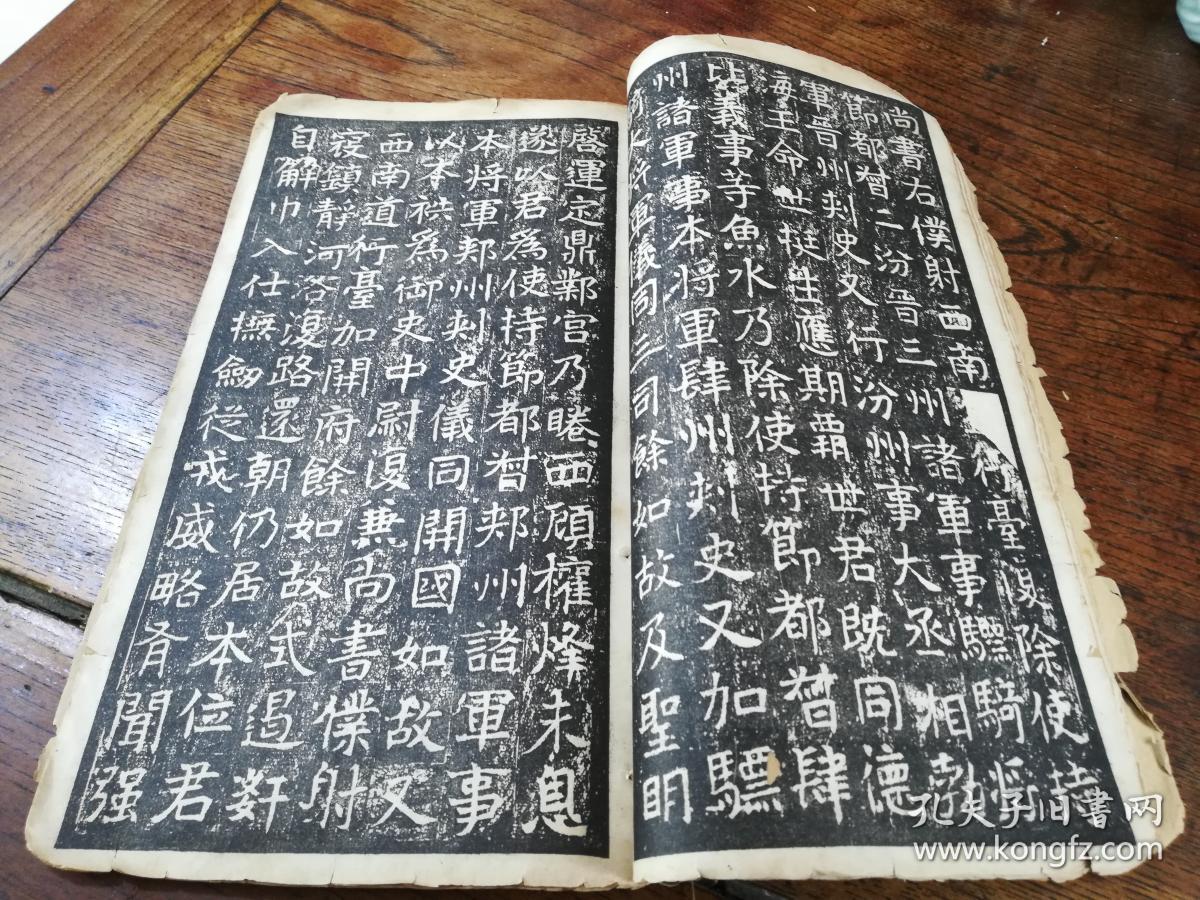 尚書右僕射西南行臺復除使持
節都督二汾晉三州諸軍事驃騎將
軍晉州刾史又行汾州事大丞相勃
海王命世挺生應期霸世君既同德
比義事等魚水乃除使持節都督肆
州諸軍事本將軍肆州刾史又加驃
大將軍儀同三司餘如故及聖明
啓運定鼎鄴宮乃睠西顧權烽未息
遂以君為使持節都督郟州諸軍事
本將軍郟州刾史儀同開國如故又
以本秩為御史中尉復兼尚書僕射
西南道行臺加開府餘如故式遏姧
寇鎮靜河洛復路還朝仍居本位君
自解巾入仕撫劒從戎威略有聞强
孔夫子旧书网
www.kongfz.com